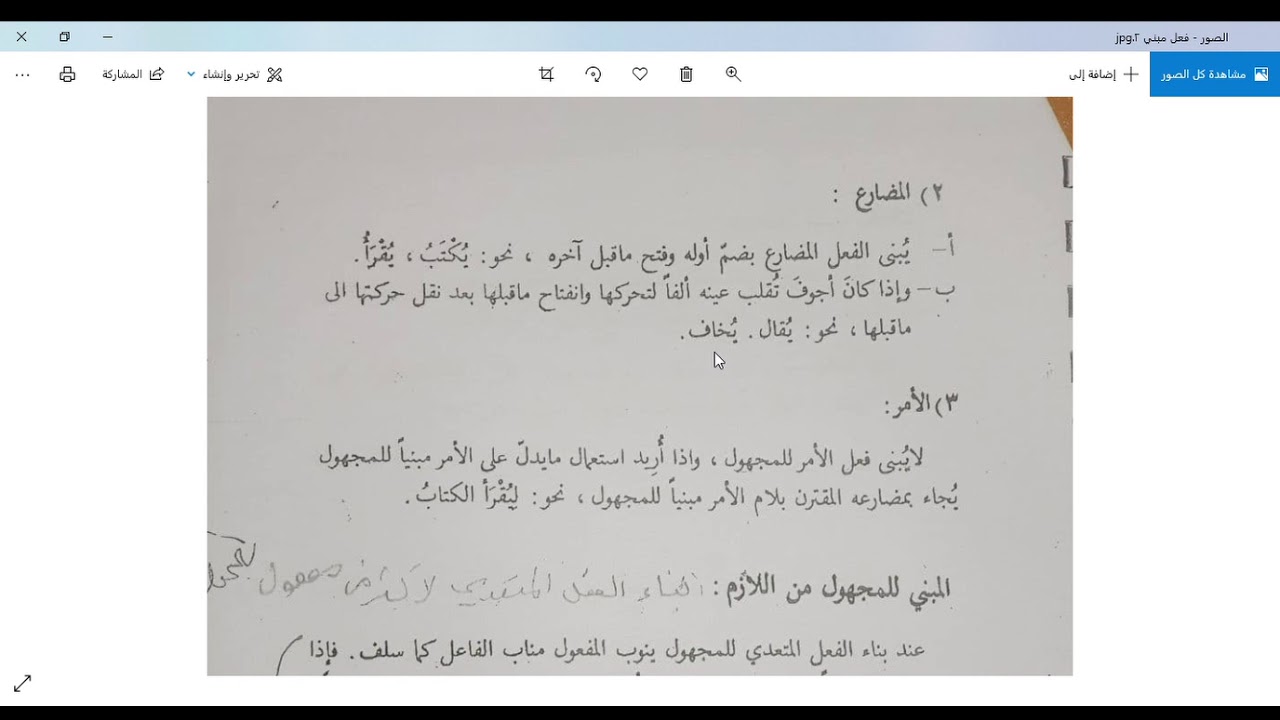 الصور - فعل مبني ٢.jpg
مشاهدة كل الصور
إضافة إلى
تحرير وإنشاء
المشاركة
٢) المضارع :
أ- يُبنى الفعل المضارع بضمّ أوله وفتح ماقبل آخره ، نحو : يُكْتَبُ ، يُقْرَأُ .
ب- وإذا كانَ أجوفَ تُقلب عينه ألفاً لتحركها وانفتاح ماقبلها بعد نقل حركتها الى
ماقبلها ، نحو : يُقال . يُخاف .
٣) الأمر :
لايُبنى فعل الأمر للمجهول ، واذا أُرِيد استعمال مايدلّ على الأمر مبنياً للمجهول
يُجاء بمضارعه المقترن بلام الأمر مبنياً للمجهول ، نحو : لِيُقْرَأ الكتابُ .
المبني للمجهول من اللازم : الفعل المتعدي لا
عند بناء الفعل المتعدي للمجهول ينوب المفعول مناب الفاعل كما سلف . فإذا